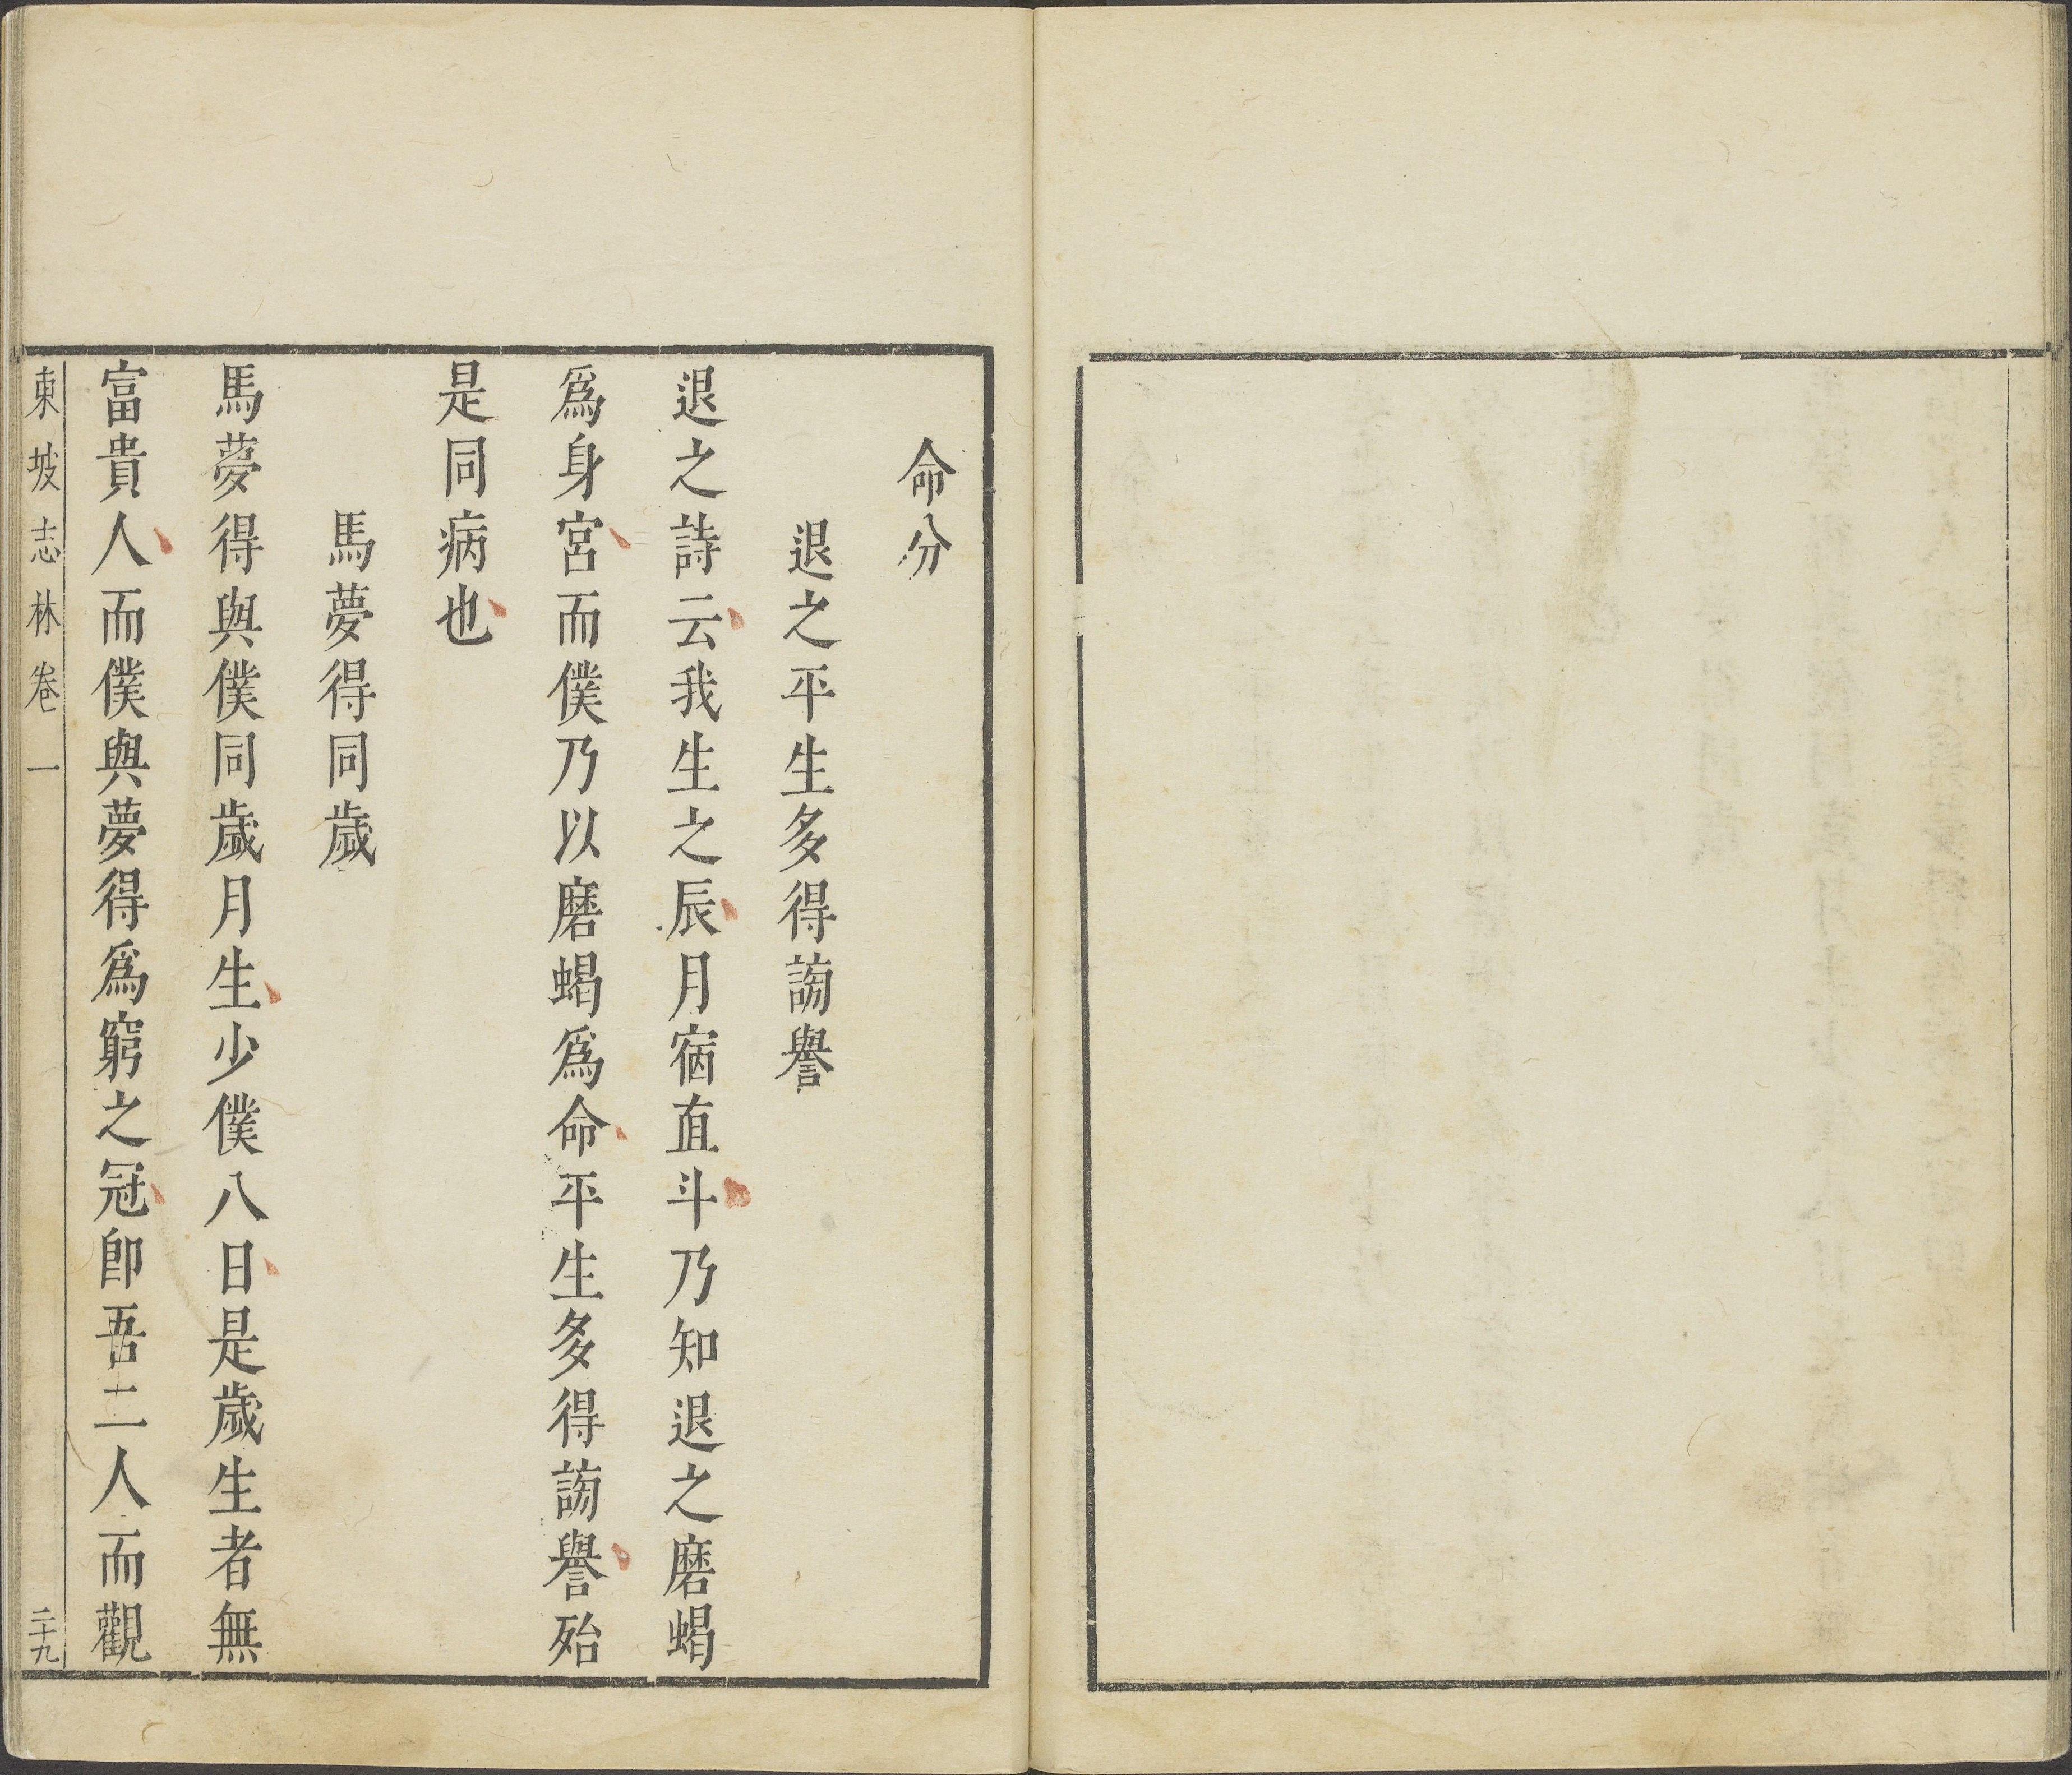 命分
退之平生多得謗譽
退之詩云我生之辰月宿直斗乃知退之磨蝎
爲身宮而僕乃以磨蝎爲命平生多得謗譽殆
是同病也
馬夢得同歲
馬夢得與僕同歲月生少僕八日是歲生者無
富貴人而僕與夢得爲窮之冠卽吾二人而觀
東坡志林卷一
二十九